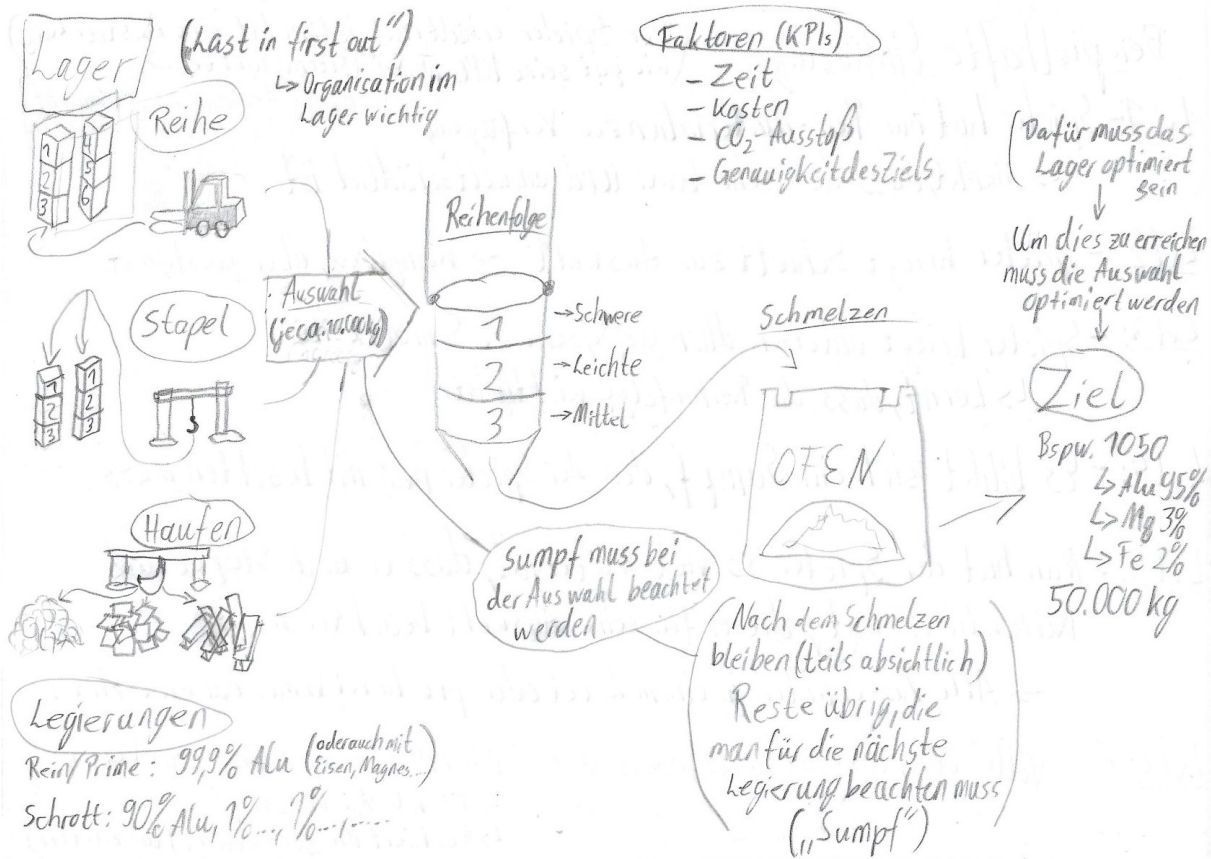 Lager
("Last in first out")
↳ Organisation im
Lager wichtig
Reihe
1
2
3
4
5
6
Stapel
1
2
3
1
2
3
Haufen
Legierungen
Rein/Prime: 99,9% Alu (oder auch mit
Eisen, Magnes....)
Schrott: 90% Alu, 1%..., 1%...,......
Auswahl
(je ca. 10.000kg)
Reihenfolge
1 → Schwere
2 → Leichte
3 → Mittel
Faktoren (KPIs)
- Zeit
- Kosten
- CO₂-Ausstoß
- Genauigkeit des Ziels
Schmelzen
OFEN
Sumpf muss bei
der Auswahl beachtet
werden
(Nach dem Schmelzen
bleiben (teils absichtlich)
Reste übrig, die
man für die nächste
Legierung beachten muss
("Sumpf"))
(Dafür muss das
Lager optimiert
sein
↓
Um dies zu erreichen
muss die Auswahl
optimiert werden
↓
Ziel
Bspw. 1050
↳ Alu 95%
↳ Mg 3%
↳ Fe 2%
50.000 kg